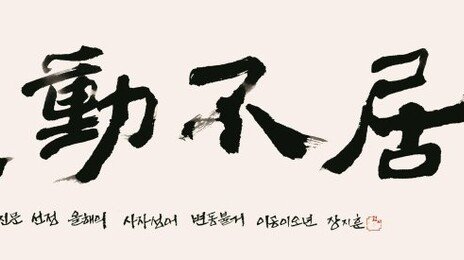 動不居
선정 올해의 사자성어 변동불거 이동이소년 장지훈